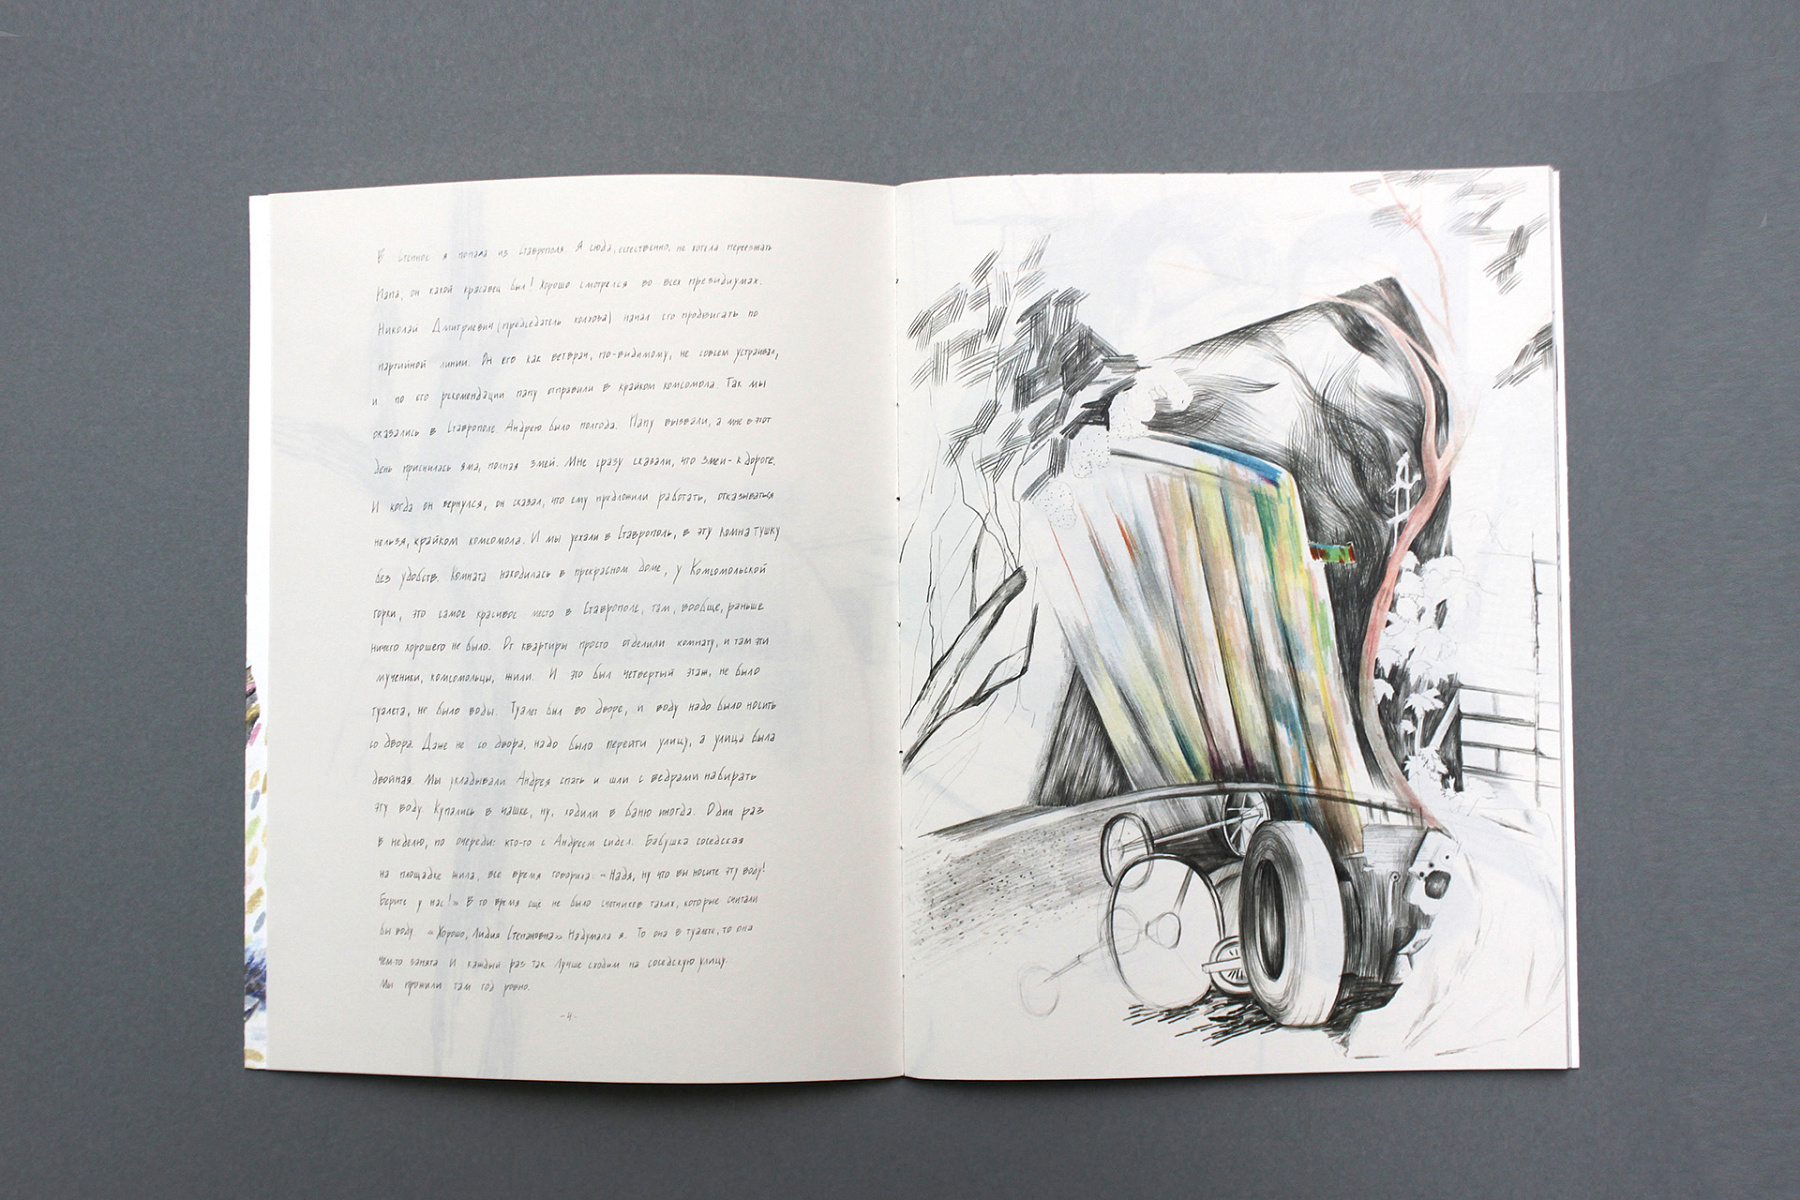 В Степное я попала из Ставрополя. Я сюда, естественно, не хотела переезжать
Папа, он какой красавец был! Хорошо смотрелся во всех президиумах.
Николай Дмитриевич (председатель колхоза) начал его продвигать по
партийной линии. Он его как ветеран, по-видимому, не совсем устраивал,
и по его рекомендации папу отправили в крайком комсомола. Так мы
оказались в Ставрополе. Андрею было полгода. Папу вызвали, а мне в этот
день приснилась яма, полная змей. Мне сразу сказали, что змеи - к дороге.
И когда он вернулся, он сказал, что ему предложили работать, отказываться
нельзя, крайком комсомола. И мы уехали в Ставрополь, в эту комнатушку
без удобств. Комната находилась в прекрасном доме, у Комсомольской
горки, это самое красивое место в Ставрополе, там, вообще, раньше
ничего хорошего не было. От квартиры просто отделили комнату, и там эти
мученики, комсомольцы, жили. И это был четвертый этаж, не было
туалета, не было воды. Туалет был во дворе, и воду надо было носить
со двора. Даже не со двора, надо было перейти улицу, а улица была
двойная. Мы укладывали Андрея спать и шли с ведрами набирать
эту воду. Купались в чашке, ну, ходили в баню иногда. Один раз
в неделю, по очереди: кто-то с Андреем сидел. Бабушка соседская
на площадке жила, все время говорила: - Надя, ну что вы носите эту воду!
Берите у нас!» В то время еще не было счетчиков таких, которые считали
бы воду. «Хорошо, Лидия Степановна» Надумала я. То она в туалете, то она
чем-то занята И каждый раз так Лучше сходим на соседскую улицу.
Мы прожили там год ровно.
- 4 -